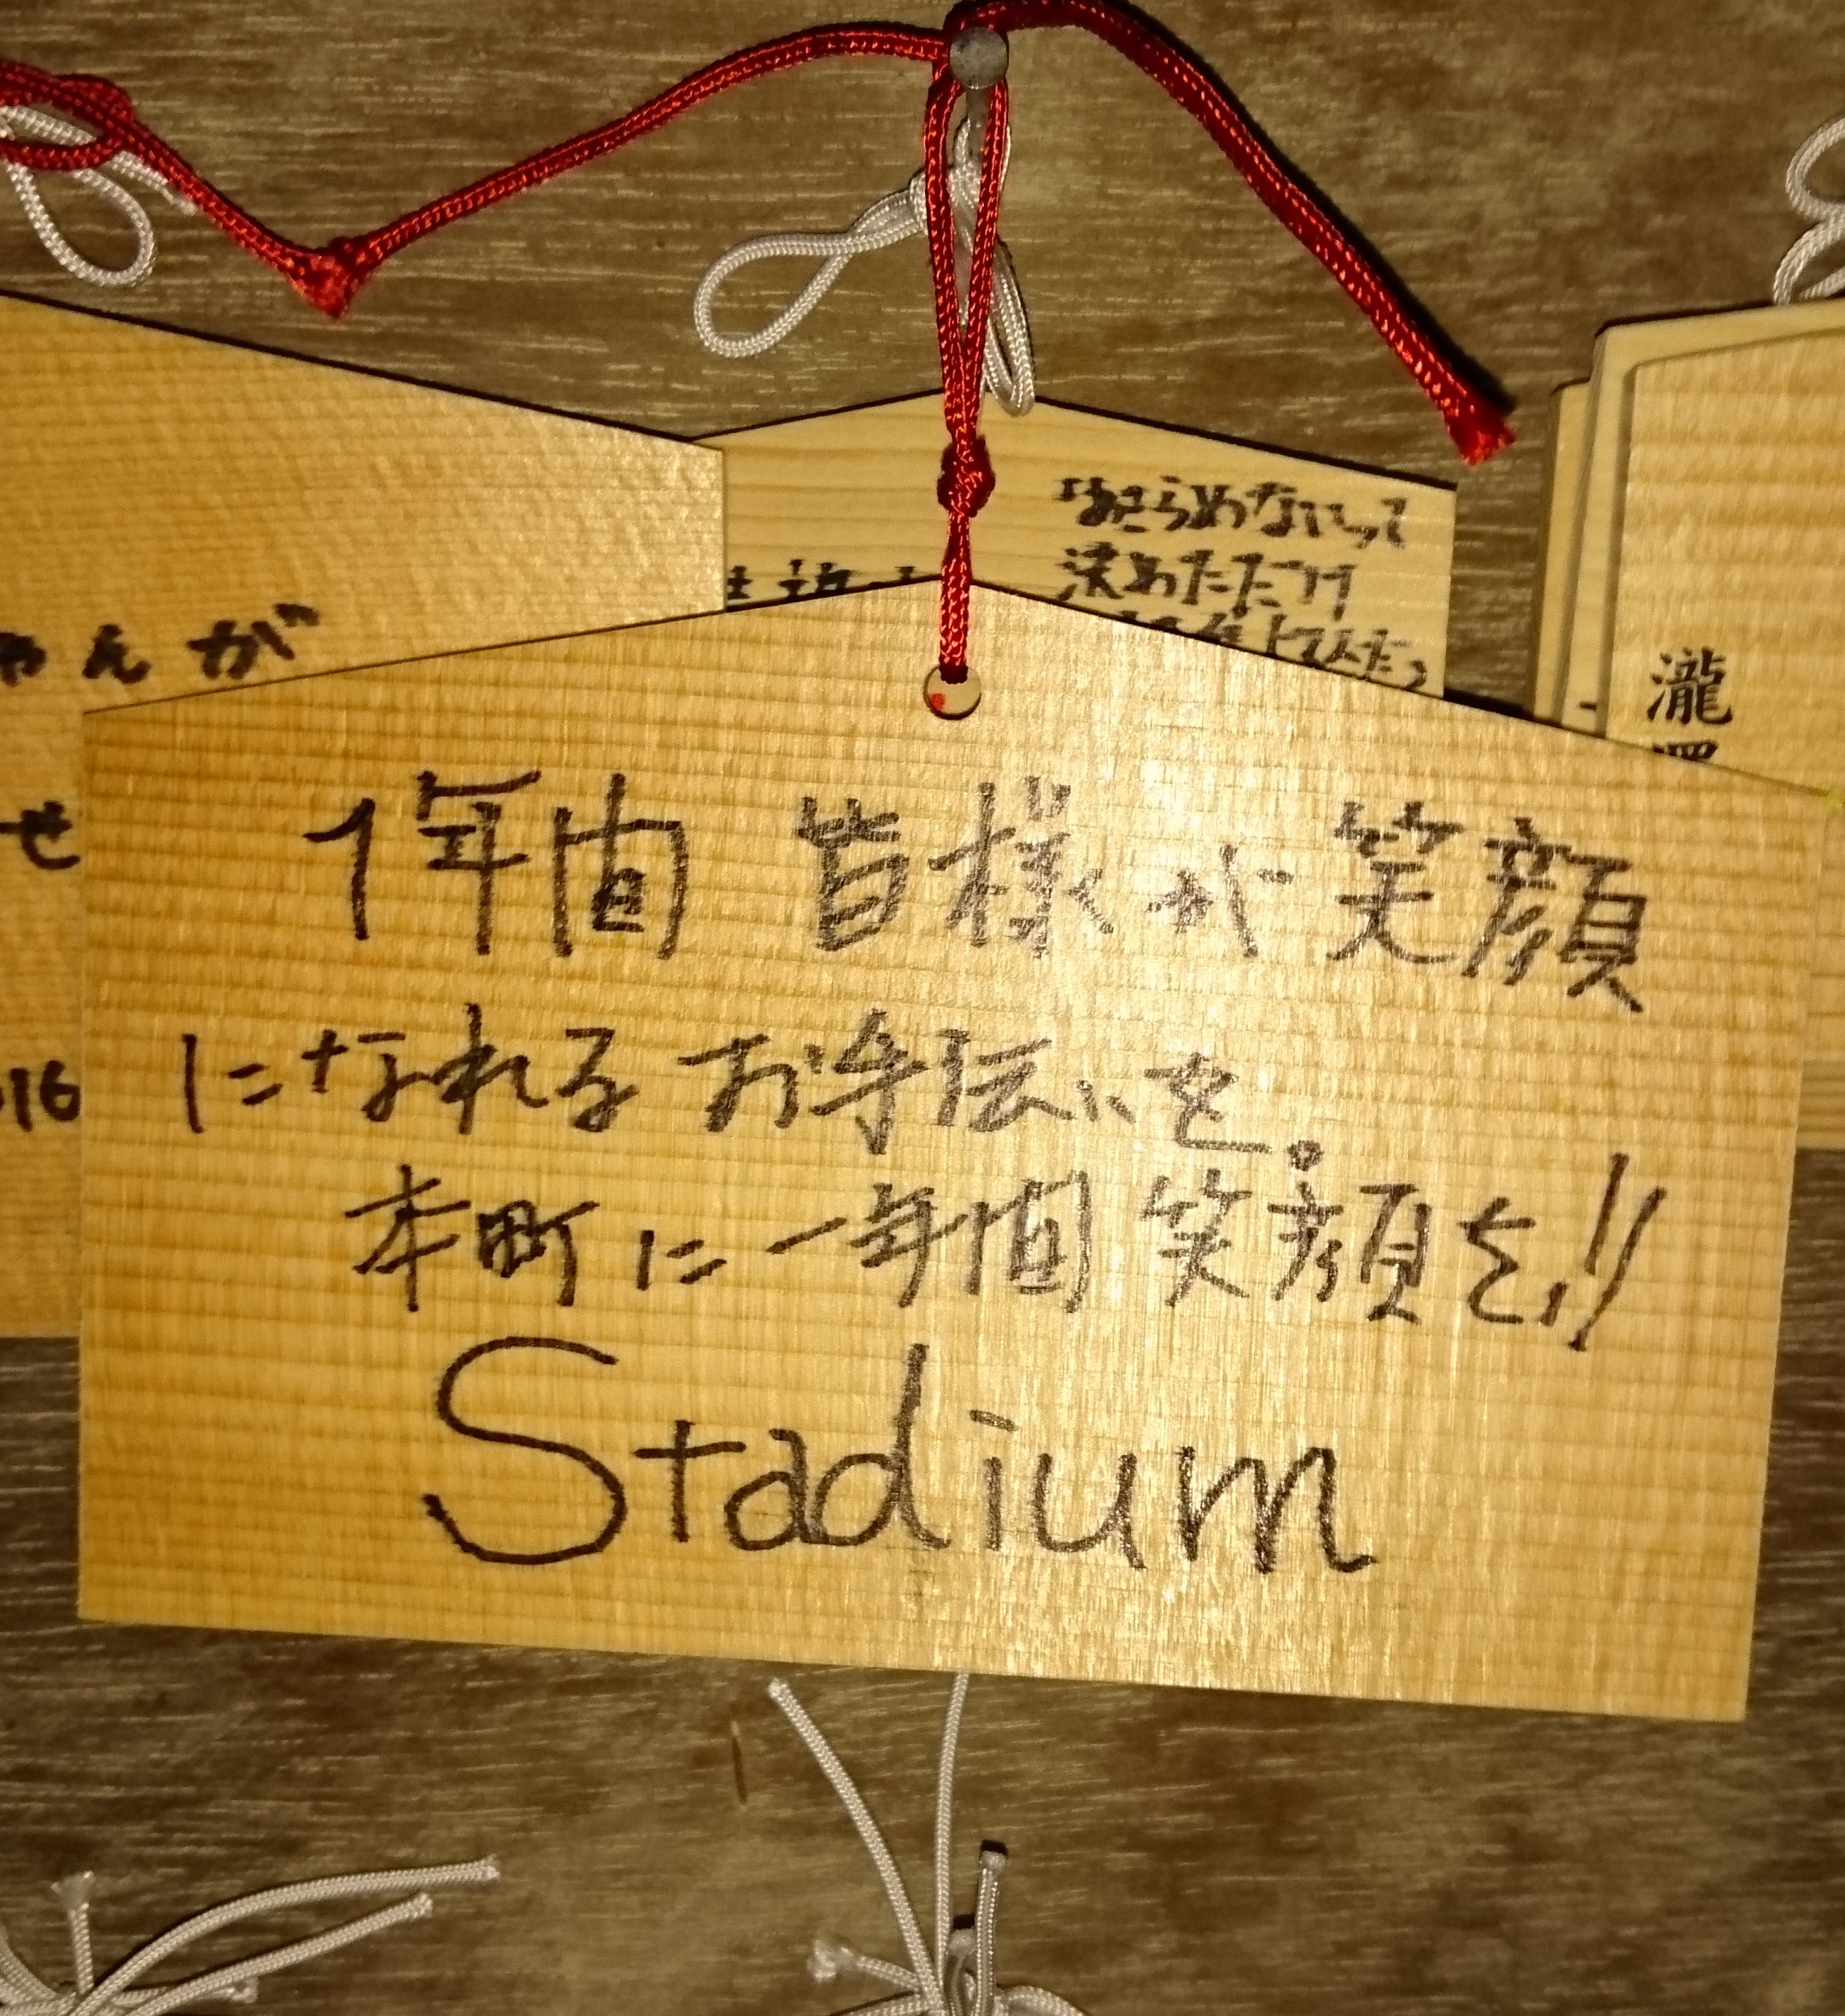 「あきらめないって
決めたたつけ
ゃんが
瀧
せ
016
1年間 皆様が笑顔
になれるお手伝いを。
本町に一年間笑顔を!!
Stadium